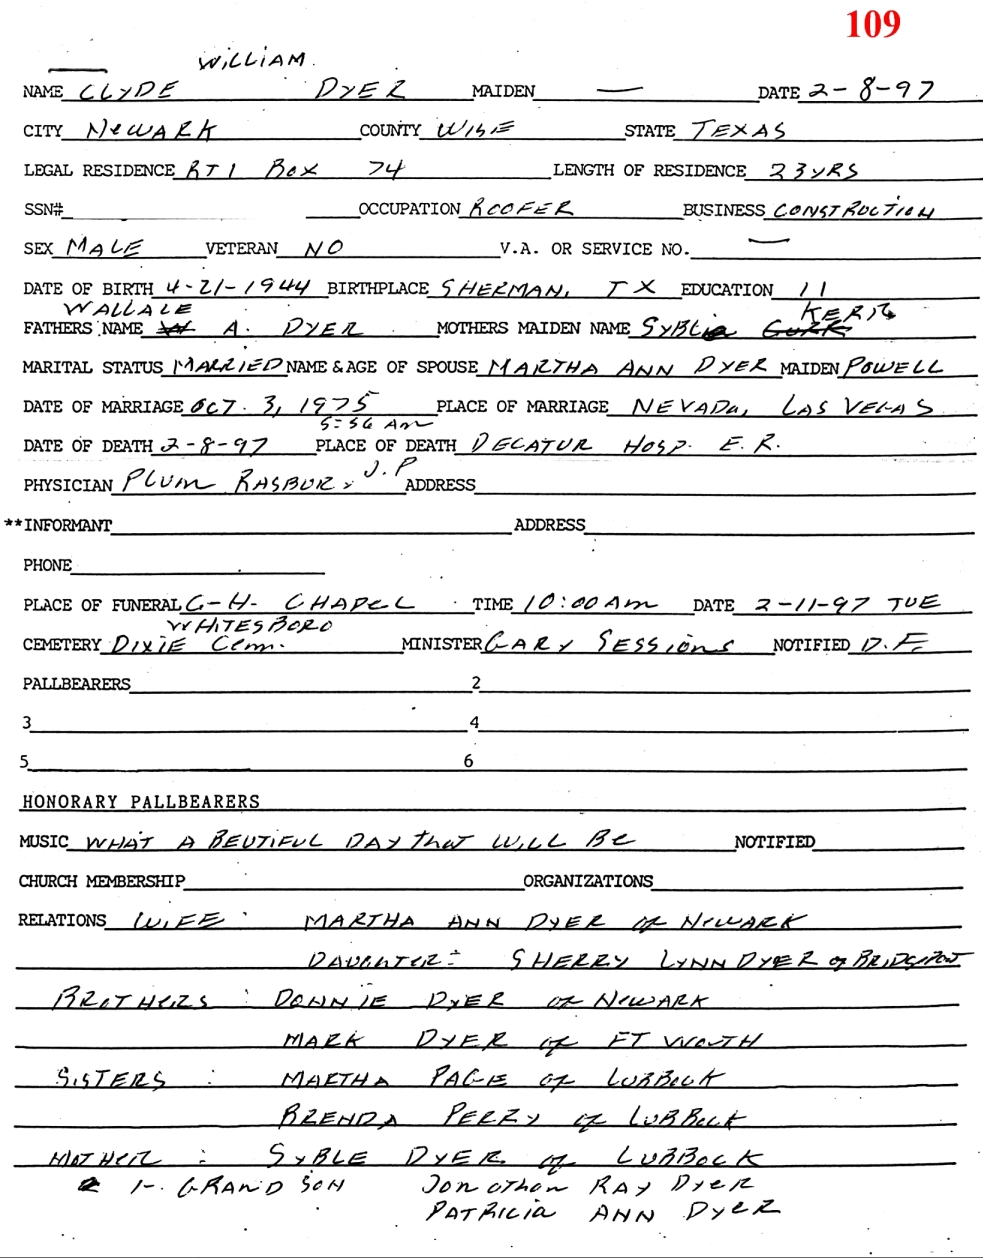 109
WiLLiAM
NAME CLYDE DYER MAIDEN — DATE 2-8-97
CITY NewARK COUNTY WISE STATE TEXAS
LEGAL RESIDENCE RT 1 Box 74 LENGTH OF RESIDENCE 23 YRS
SSN# OCCUPATION ROOFER BUSINESS CONSTRUCTION
SEX MALE VETERAN NO V.A. OR SERVICE NO. —
DATE OF BIRTH 4-21-1944 BIRTHPLACE SHERMAN, TX EDUCATION 11
WALLALE KERR
FATHERS NAME A. DYER MOTHERS MAIDEN NAME SYBLe
MARITAL STATUS MARRIED NAME & AGE OF SPOUSE MARTHA ANN DYER MAIDEN POWELL
DATE OF MARRIAGE OCT. 3, 1975 PLACE OF MARRIAGE NEVADA, LAS VEGAS
5:56 Am
DATE OF DEATH 2-8-97 PLACE OF DEATH DECATUR HOSP. E.R.
PHYSICIAN PLUM RASBURY J.P ADDRESS
**INFORMANT ADDRESS
PHONE
PLACE OF FUNERAL G-H- CHAPEL TIME 10:00 Am DATE 2-11-97 TUE
WHITESBORO
CEMETERY DIXIE Cem. MINISTER GARY SESSIONS NOTIFIED D.F.
PALLBEARERS 2
3 4
5 6
HONORARY PALLBEARERS
MUSIC WHAT A BEUTIFUL DAY that WILL Be NOTIFIED
CHURCH MEMBERSHIP ORGANIZATIONS
RELATIONS WIFE: MARTHA ANN DYER of NEWARK
DAUGHTER: SHERRY LYNN DYER of BRIDGEPORT
BROTHERS: DONNIE DYER of NEWARK
MARK DYER of FT WORTH
SISTERS: MARTHA PAGE of LUBBOCK
BRENDA PERRY of LUBBOCK
MOTHER: SYBLE DYER of LUBBOCK
1-. GRAND SON Jonathan RAY Dyer
PATRICIA ANN DyeR